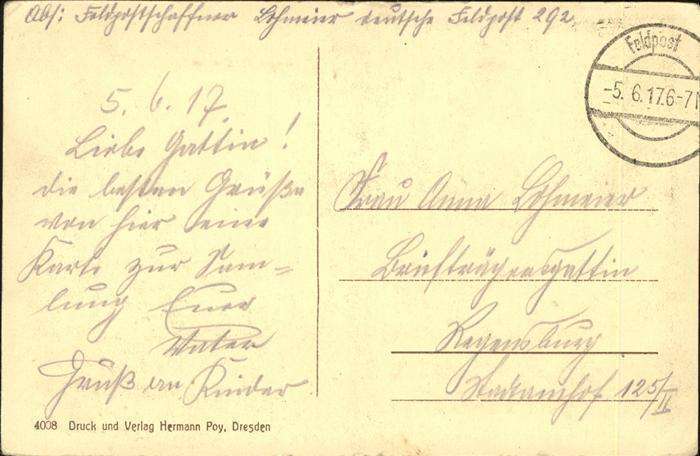 Abs: Feldpostschaffner Lohmeier deutsche Feldpost 292.
Feldpost
-5. 6. 17. 6-7 N
5. 6. 17.
Liebe Gattin!
die besten Grüße
von hier eine
Karte zur Sam=
lung Euer
Vater
Gruß an Kinder
Frau Anna Lohmeier
Briefträgersgattin
Regensburg
Stadtamhof 125/II
4008 Druck und Verlag Hermann Poy, Dresden